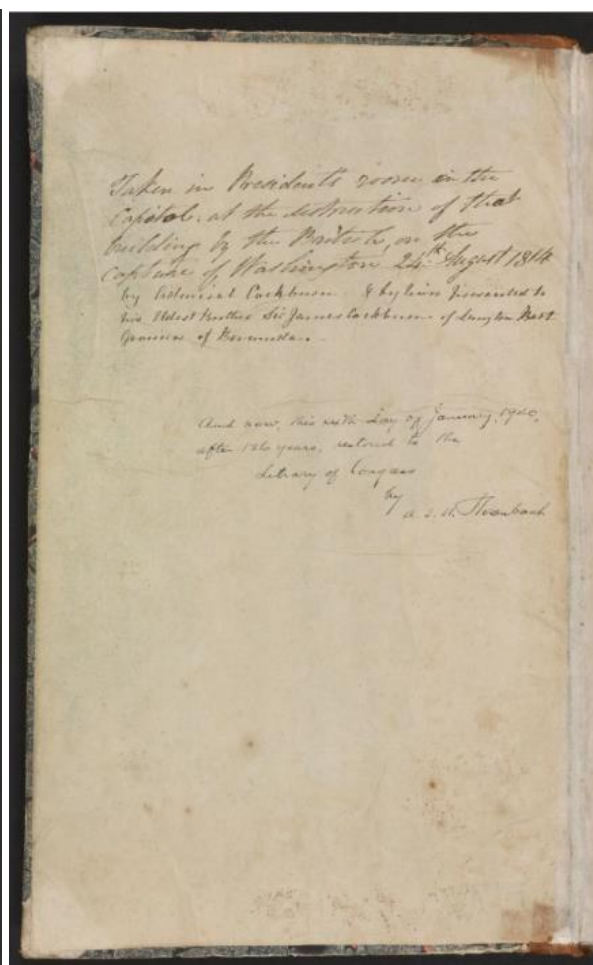 Taken in Presidents room in the
Capitol, at the destruction of that
building by the British, on the
capture of Washington 24th August 1814
by Admiral Cockburn & by him presented to
his Eldest Brother Sir James Cockburn of Langton Bart
Governor of Bermuda
And now, this sixth day of January, 1940,
after 126 years, restored to the
Library of Congress
by
A. S. W. Rosenbach